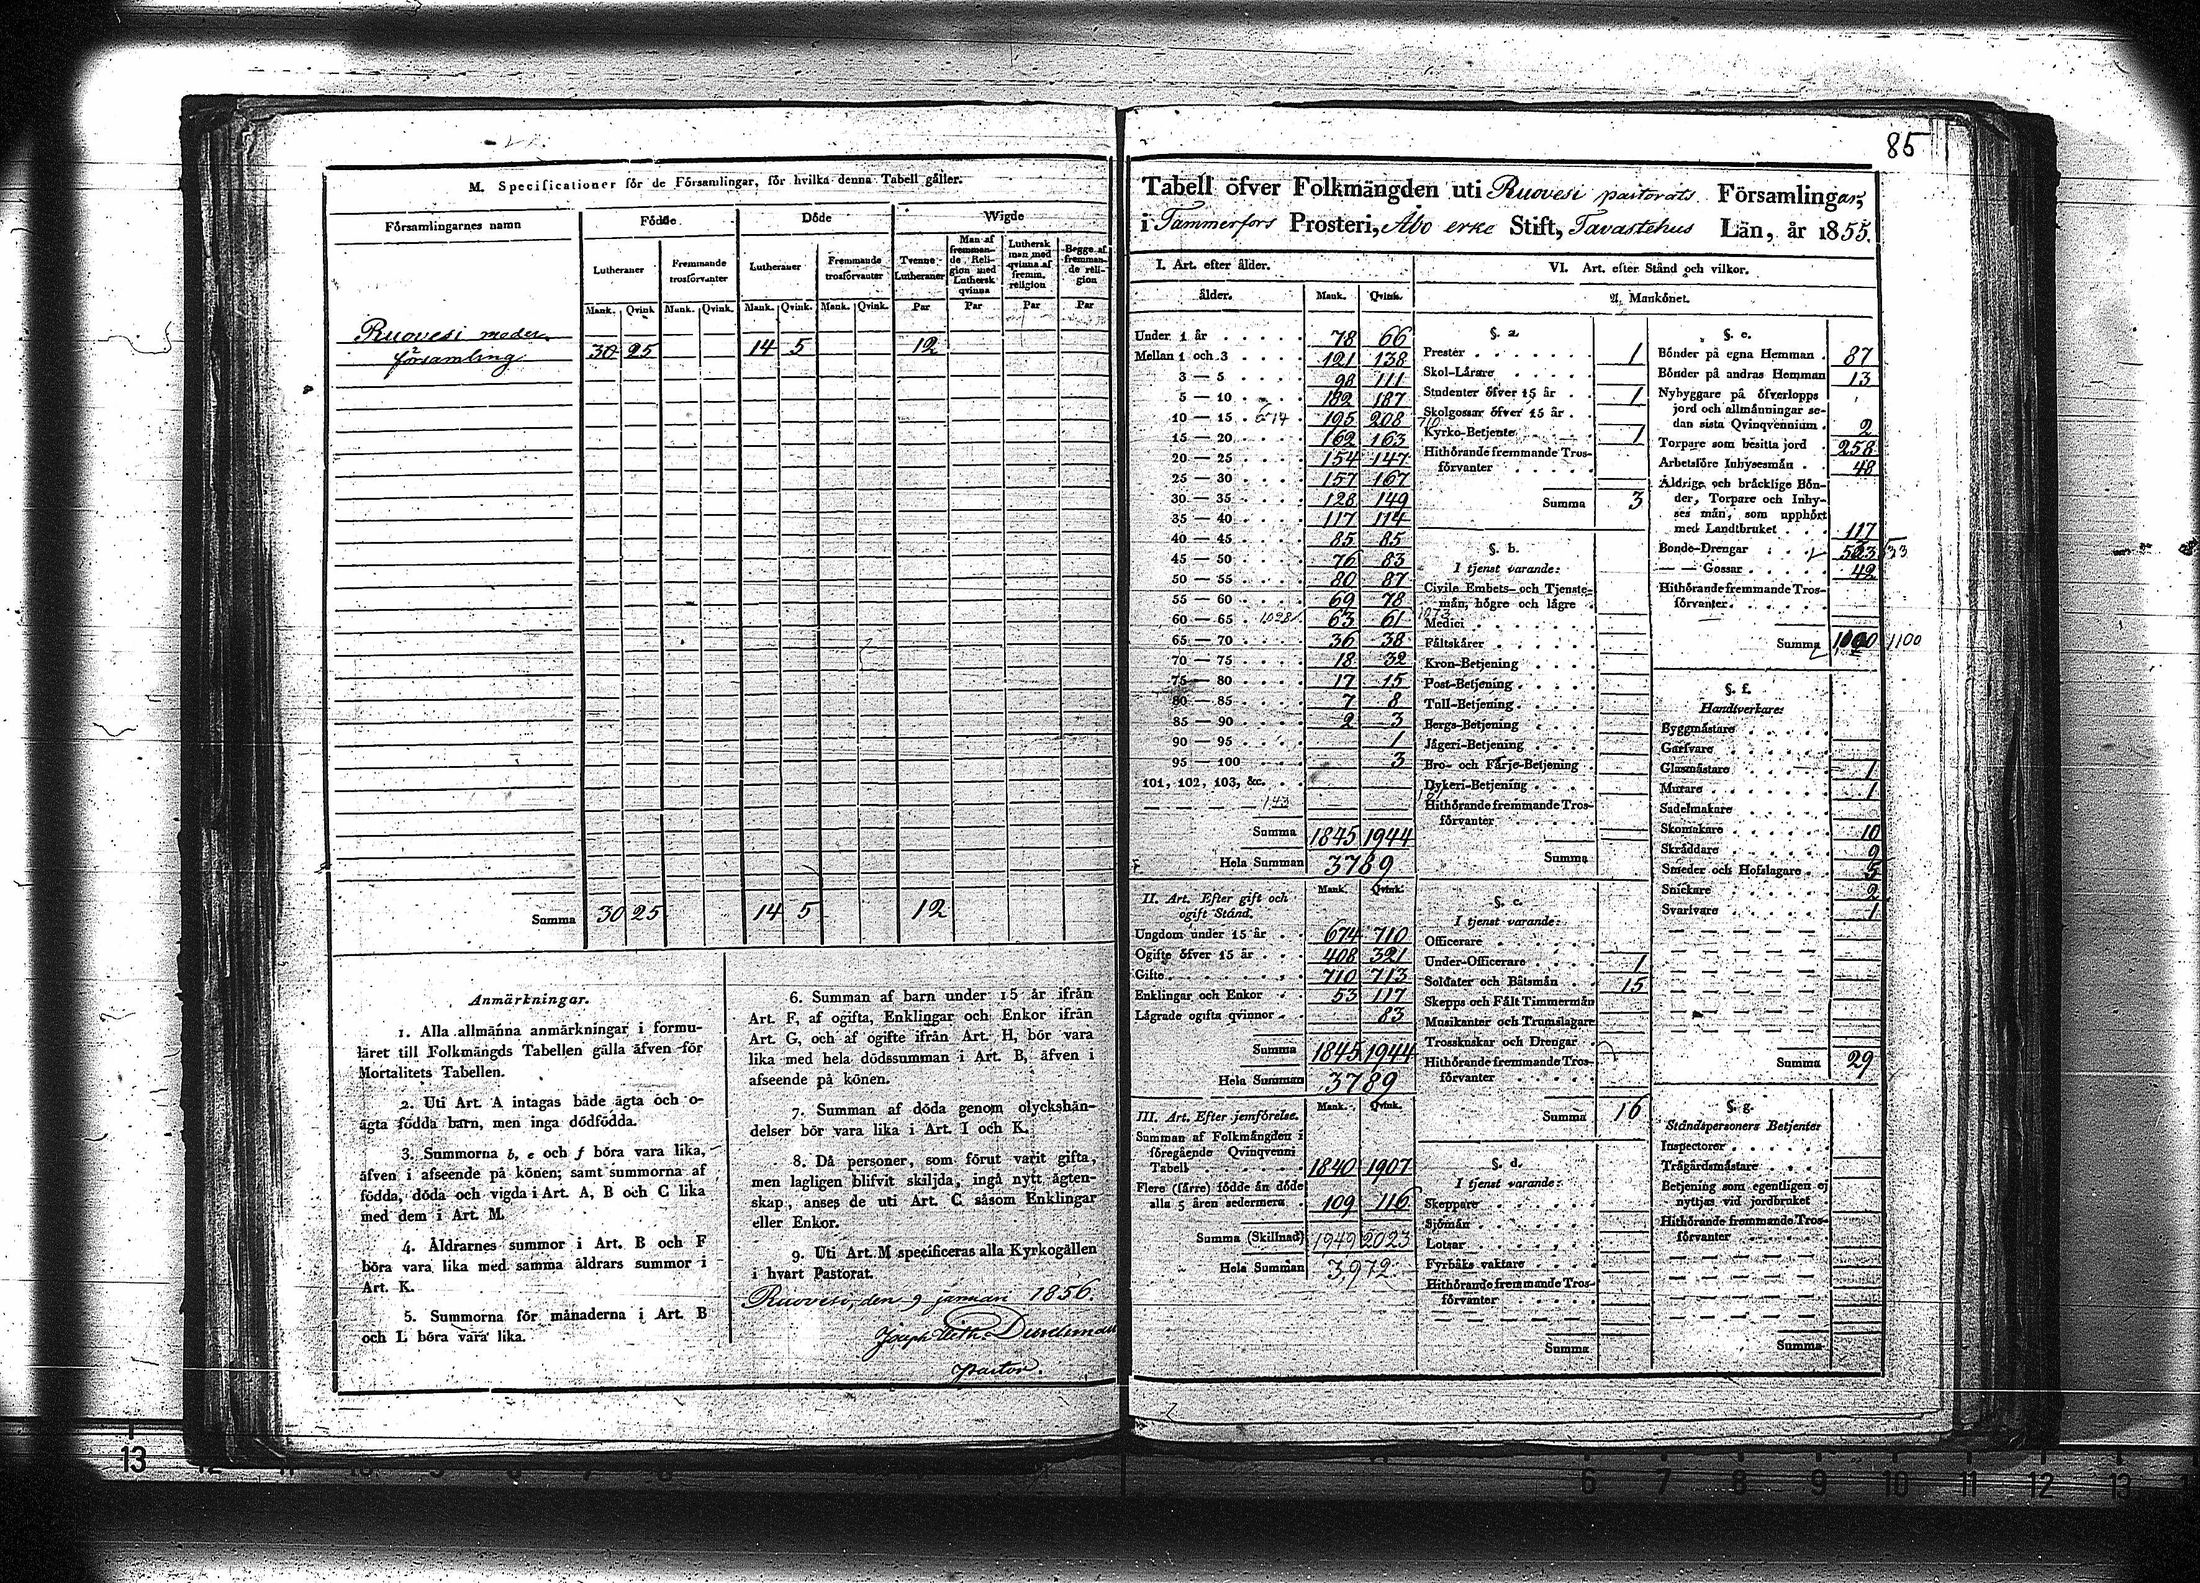 85
M. Specificationer för de Församlingar, för hvilka denna Tabell gäller.
Församlingarnes namn
Födde.
Döde
Wigde
Lutheraner
Fremmande trosförvanter
Lutheraner
Fremmande trosförvanter
Tvenne Lutheraner
Man af fremmande Religion med Luthersk qvinna
Luthersk man med qvinna af fremm. religion
Begge af fremmande religion
Mank. Qvink. Mank. Qvink. Mank. Qvink. Mank. Qvink. Par Par Par Par
Ruovesi moder-
församling 30 25 14 5 12
Summa 30 25 14 5 12
Anmärkningar.
1. Alla allmänna anmärkningar i formu-
läret till Folkmängds Tabellen gälla äfven för
Mortalitets Tabellen.
2. Uti Art. A intagas både ägta och o-
ägta födda barn, men inga dödfödda.
3. Summorna b, e och f böra vara lika,
äfven i afseende på könen; samt summorna af
födda, döda och vigda i Art. A, B och C lika
med dem i Art. M.
4. Åldrarnes summor i Art. B och F
böra vara lika med samma åldrars summor i
Art. K.
5. Summorna för månaderna i Art. B
och L böra vara lika.
6. Summan af barn under 15 år ifrån
Art. F, af ogifta, Enklingar och Enkor ifrån
Art. G, och af ogifte ifrån Art. H, bör vara
lika med hela dödssumman i Art. B, äfven i
afseende på könen.
7. Summan af döda genom olyckshän-
delser bör vara lika i Art. I och K.
8. Då personer, som förut varit gifta,
men lagligen blifvit skiljda, ingå nytt ägten-
skap, anses de uti Art. C såsom Enklingar
eller Enkor.
9. Uti Art. M specificeras alla Kyrkogällen
i hvart Pastorat.
Ruovesi, den 9 januari 1856.
Pastor.
Tabell öfver Folkmängden uti Ruovesi pastorats Församlingar,
i Tammerfors Prosteri, Åbo erke Stift, Tavastehus Län, år 1855.
I. Art. efter ålder.
ålder. Mank. Qvink.
Under 1 år 78 66
Mellan 1 och 3 121 138
3 — 5 98 111
5 — 10 182 187
10 — 15 195 208
15 — 20 162 163
20 — 25 154 147
25 — 30 157 167
30 — 35 128 149
35 — 40 117 114
40 — 45 85 85
45 — 50 76 83
50 — 55 80 87
55 — 60 69 78
60 — 65 63 61
65 — 70 36 38
70 — 75 18 32
75 — 80 17 15
80 — 85 7 8
85 — 90 2 3
90 — 95 1
95 — 100 3
101, 102, 103, &c.
143
Summa 1845 1944
Hela Summan 3789
II. Art. Efter gift och
ogift Stånd.
Mank. Qvink.
Ungdom under 15 år 674 710
Ogifte öfver 15 år 408 321
Gifte 710 713
Enklingar och Enkor 53 117
Lägrade ogifta qvinnor 83
Summa 1845 1944
Hela Summan 3789
III. Art. Efter jemförelse.
Mank. Qvink.
Summan af Folkmängden i
föregående Qvinqvenni
Tabell 1840 1907
Flere (färre) födde än döde
alla 5 åren sedermera 109 116
Summa (Skillnad) 1949 2023
Hela Summan 3,972
VI. Art. efter Stånd och vilkor.
A. Mankönet.
§. a.
Prester 1
Skol-Lärare
Studenter öfver 15 år 1
Skolgossar öfver 15 år
Kyrko-Betjente 1
Hithörande fremmande Tros-
förvanter
Summa 3
§. b.
I tjenst varande:
Civile Embets- och Tjenste-
män, högre och lägre
Medici
Fältskärer
Kron-Betjening
Post-Betjening
Tull-Betjening
Bergs-Betjening
Jägeri-Betjening
Bro- och Färje-Betjening
Dykeri-Betjening
Hithörande fremmande Tros-
förvanter
Summa
§. c.
I tjenst varande:
Officerare
Under-Officerare 1
Soldater och Båtsmän 15
Skepps och Fält Timmermän
Musikanter och Trumslagare
Trosskuskar och Drengar
Hithörande fremmande Tros-
förvanter
Summa 16
§. d.
I tjenst varande:
Skeppare
Sjömän
Lotsar
Fyrbåks vaktare
Hithörande fremmande Tros-
förvanter
Summa
§. e.
Bönder på egna Hemman 87
Bönder på andras Hemman 13
Nybyggare på öfverlopps
jord och allmänningar se-
dan sista Qvinqvennium 2
Torpare som besitta jord 258
Arbetsföre Inhysesmän 48
Åldrige och bräcklige Bön-
der, Torpare och Inhy-
ses män, som upphört
med Landtbruket 117
Bonde-Drengar 523 33
— — Gossar 42
Hithörande fremmande Tros-
förvanter
Summa 1090 1100
§. f.
Handtverkare:
Byggmästare
Garfvare
Glasmästare 1
Murare 1
Sadelmakare
Skomakare 10
Skräddare 9
Smeder och Hofslagare 5
Snickare 2
Svarfvare 1
Summa 29
§. g.
Ståndspersoners Betjenter
Inspectorer
Trägårdsmästare
Betjening som egentligen ej
nyttjas vid jordbruket
Hithörande fremmande Tros-
förvanter
Summa
13 12 11 10 9 8 7 6 7 8 9 10 11 12 13